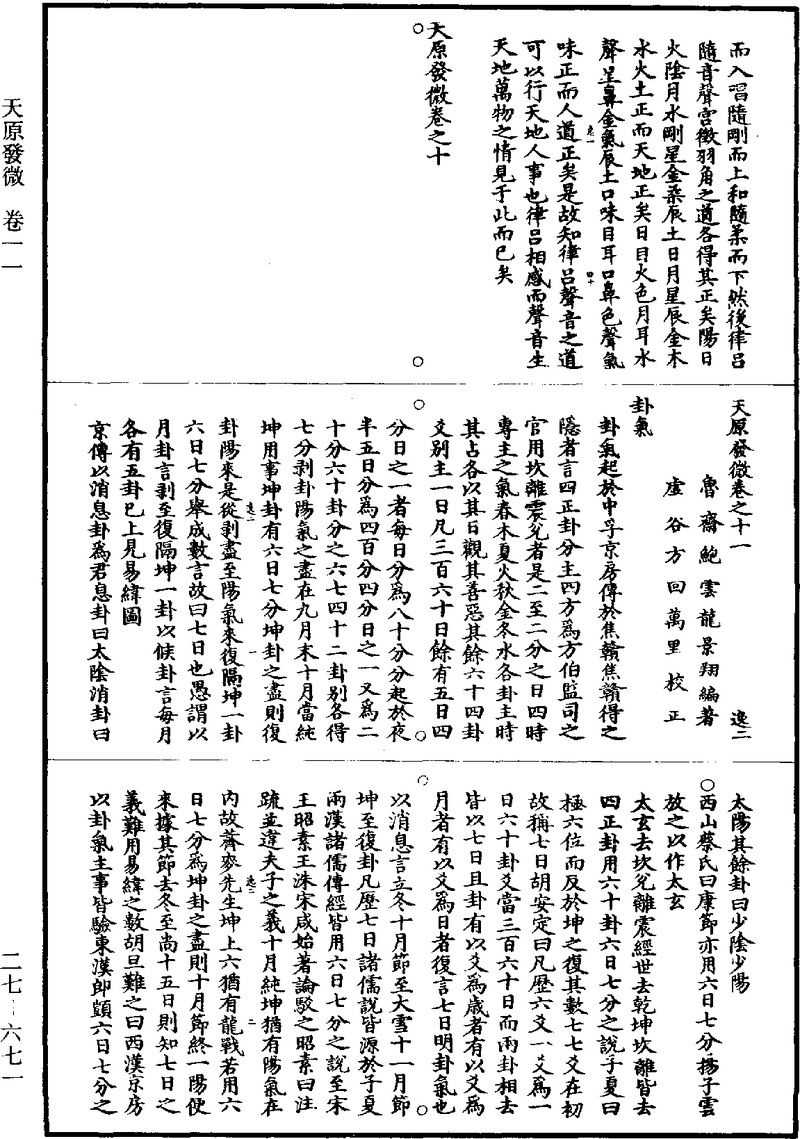 天原發微　卷一一
二七—六七一
而入唱隨剛而上和隨柔而下然後律呂
隨音聲宮徵羽角之道各得其正矣陽日
火陰月水剛星金柔辰土日月星辰金木
水火土正而天地正矣日目火色月耳水
聲星鼻金氣辰土口味目耳口鼻色聲氣
味正而人道正矣是故知律呂聲音之道
可以行天地人事也律呂相感而聲音生
天地萬物之情見于此而已矣
天原發微卷之十
天原發微卷之十一　逸二
魯齋鮑雲龍景翔編著
虛谷方回萬里校正
卦氣
卦氣起於中孚京房傳於焦贛焦贛得之
隱者言四正卦分主四方為方伯監司之
官用坎離震兌者是二至二分之日四時
專主之氣春木夏火秋金冬水各卦主時
其占各以其日觀其善惡其餘六十四卦
爻別主一日凡三百六十日餘有五日四
分日之一者每日分為八十分分起於夜
半五日分為四百分四分日之一又為二
十分六十卦分之六七四十二卦別各得
七分剥卦陽氣之盡在九月末十月當純
坤用事坤卦有六日七分坤卦之盡則復
卦陽來是從剥盡至陽氣來復隔坤一卦
六日七分舉成數言故曰七日也愚謂以
月卦言剥至復隔坤一卦以候卦言每月
各有五卦已上見易緯圖
京傳以消息卦為君息卦曰太陰消卦曰
太陽其餘卦曰少陰少陽
○西山蔡氏曰康節亦用六日七分揚子雲
放之以作太玄
太玄去坎兌離震經世去乾坤坎離皆去
四正卦用六十卦六日七分之說子夏曰
極六位而反於坤之復其數七七爻在初
故稱七日胡安定曰凡歷六爻一爻為一
日六十卦爻當三百六十日而兩卦相去
皆以七日且卦有以爻為歲者有以爻為
月者有以爻為日者復言七日明卦氣也
以消息言立冬十月節至大雪十一月節
坤至復卦凡歷七日諸儒說皆源於子夏
兩漢諸儒傳經皆用六日七分之說至宋
王昭素王洙宋咸始著論駁之昭素曰注
疏並違夫子之義十月純坤猶有陽氣在
內故薺麥先生坤上六猶有龍戰若用六
日七分為坤卦之盡則十月節終一陽便
來據其節去冬至尚十五日則知七日之
義難用易緯之數胡旦難之曰西漢京房
以卦氣主事皆驗東漢郎顗六日七分之